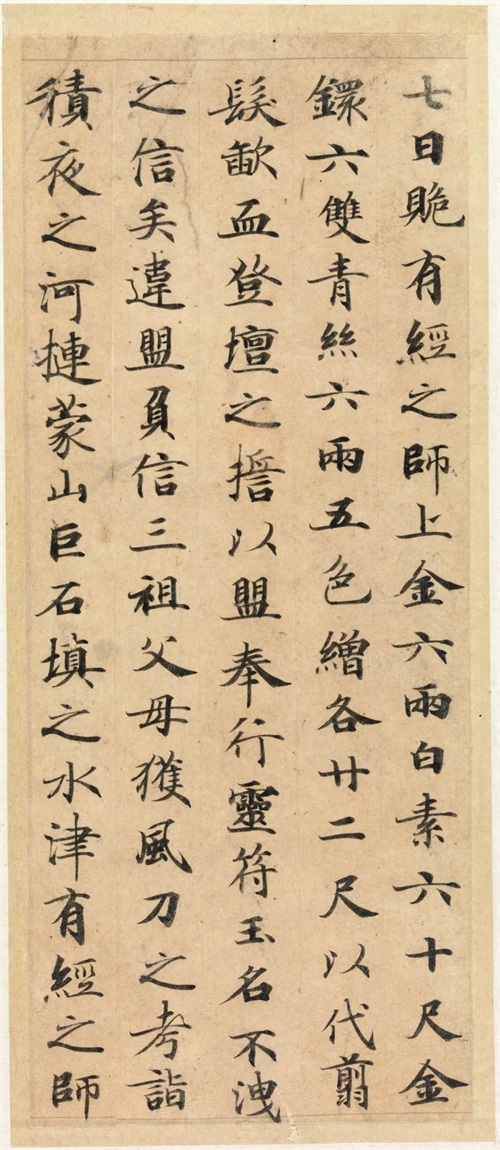 七日賄有經之師上金六兩白素六十尺金
鐶六雙青絲六兩五色繒各廿二尺以代翦
髮歃血登壇之誓以盟奉行靈符玉名不洩
之信矣違盟負信三祖父母獲風刀之考詣
積夜之河摙蒙山巨石填之水津有經之師